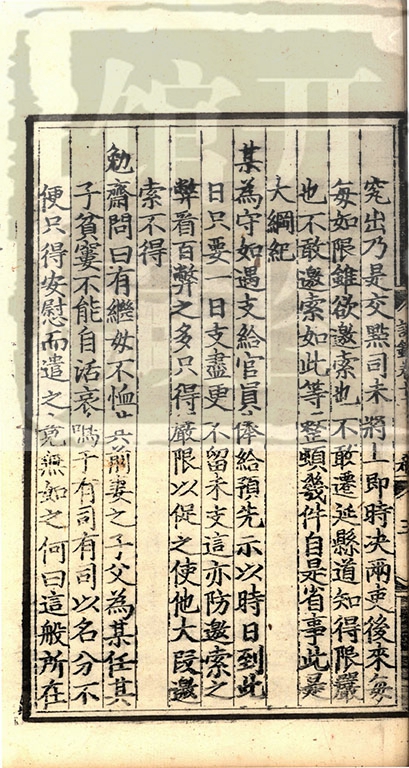 究出乃是交點司未將上即時决兩吏後來每
每如限雖欲邀索也不敢遷延縣道知得限嚴
也不敢邀索如此等整頓幾件自是省事此是
大綱紀
某為守如遇支給官員俸給預先示以時日到此
日只要一日支盡更不留未支這亦防邀索之
弊看百弊之多只得嚴限以促之使他大段邀
索不得
勉齋問曰有繼母不恤前妻之子父為某任其
子貧窶不能自活哀鳴于有司有司以名分不
便只得安慰而遣之竟無如之何曰這般所在